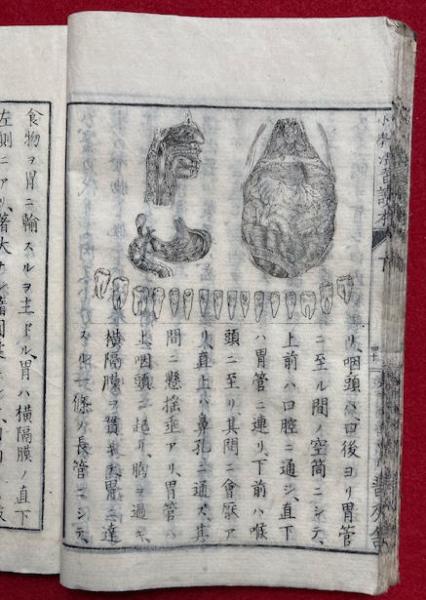 リ、咽頭ハ口後ヨリ胃管
ニ至ル間ノ空筒ニシテ、
上前ハ口腔ニ通ジ、直下
ハ胃管ニ連リ、下前ハ喉
頭ニ至リ、其間ニ會厭ア
リ、直上ハ鼻孔ニ通ズ、其
間ニ懸擁垂アリ、胃管ハ
上、咽頭ニ起リ、胸ヲ過ギ、
横隔膜ヲ貫キ、胃ニ達
スル一條ノ長管ニシテ、
食物ヲ胃ニ輸スルヲ主ドル、胃ハ横隔膜ノ直下
左側ニアリ